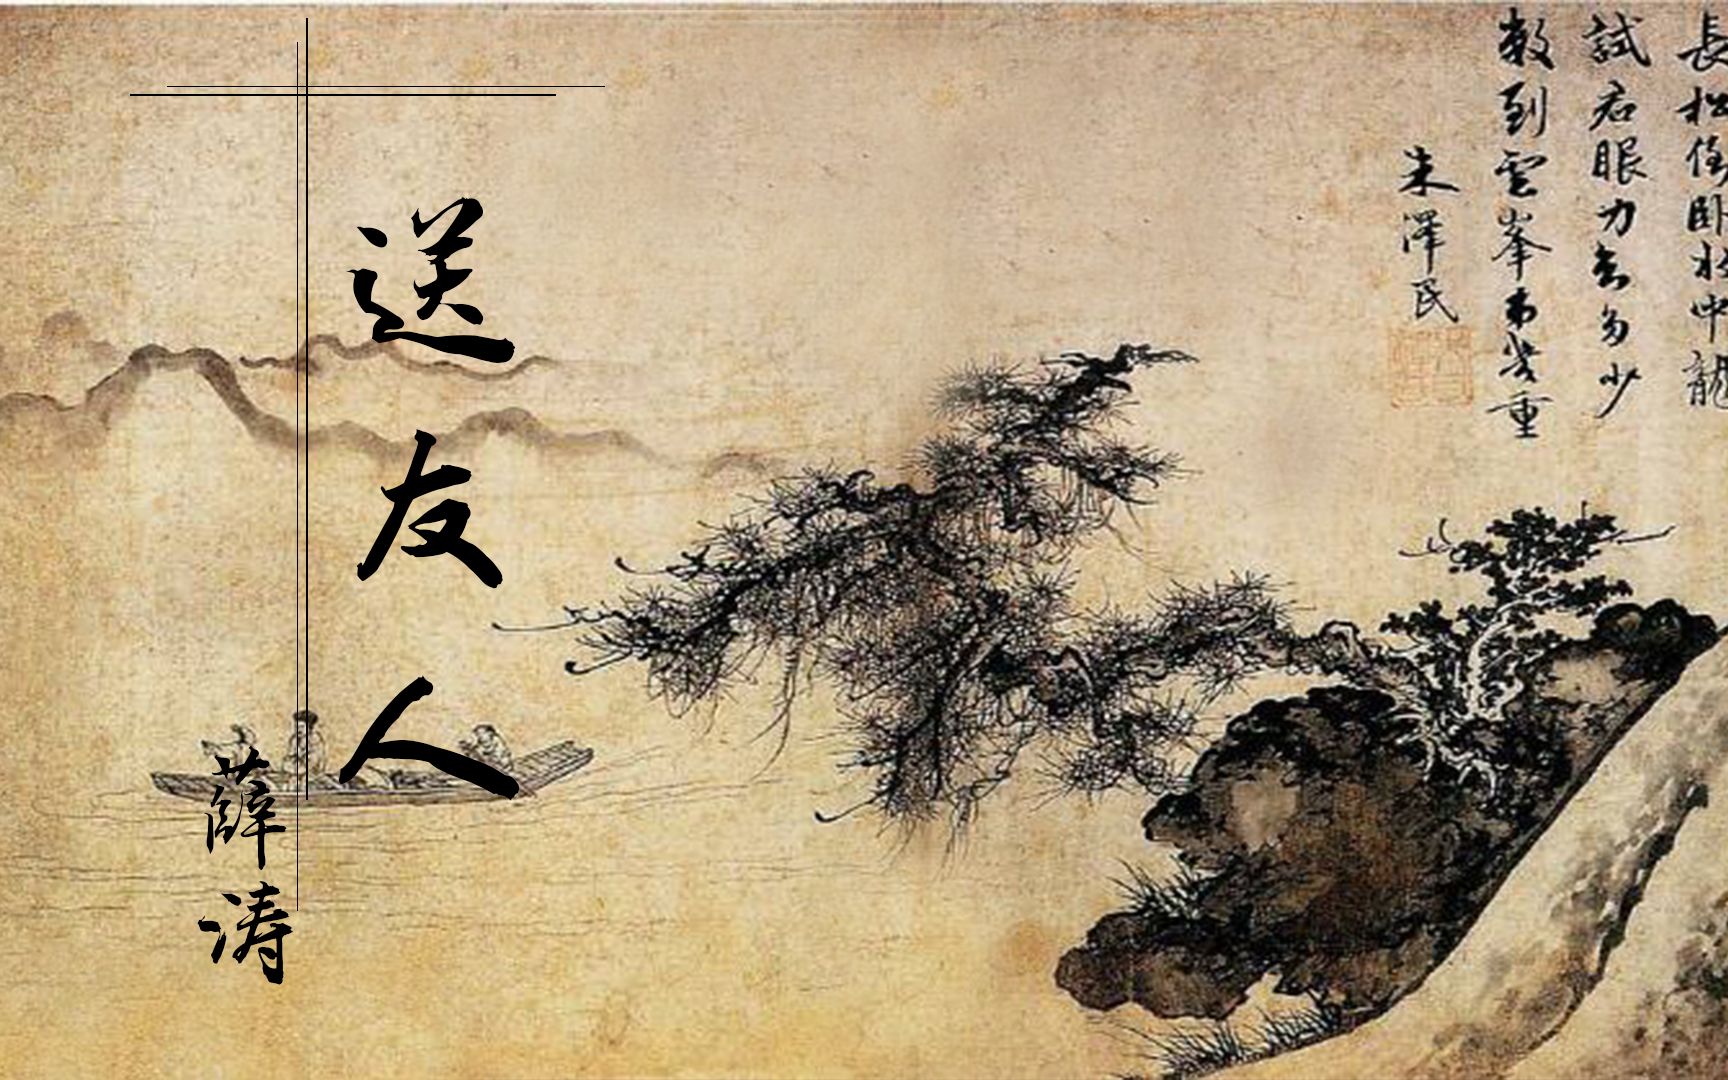 長松倒卧水中龍
試君眼力知多少
數到雲峯第幾重
朱澤民
送友人
薛涛